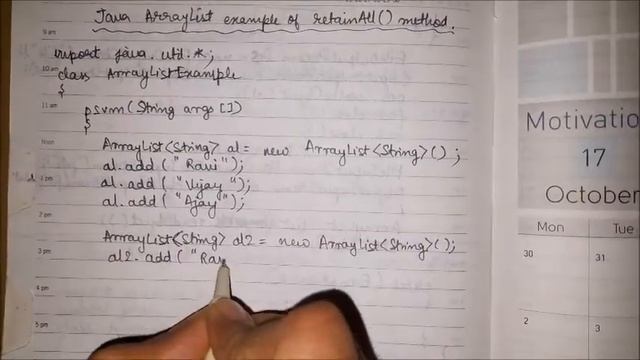 Java ArrayList example of retainAll() method.
9 am
import java.util.*;
10 am
class ArrayListExample
{
11 am
psvm(String args[])
{
Noon
ArrayList<String> al = new ArrayList<String>();
al.add("Ravi");
1 pm
al.add("Vijay");
al.add("Ajay");
2 pm
ArrayList<String> al2 = new ArrayList<String>();
3 pm
al2.add("Rav
4 pm
5 pm
Motivatio
17
October
Mon Tue
30 31
2 3